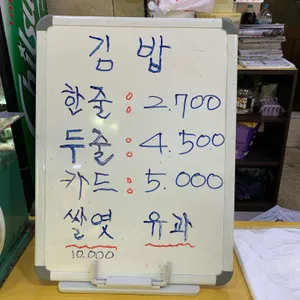 김 밥
한줄 : 2.700
두줄 : 4.500
카드 : 5.000
쌀엿 유과
10.000